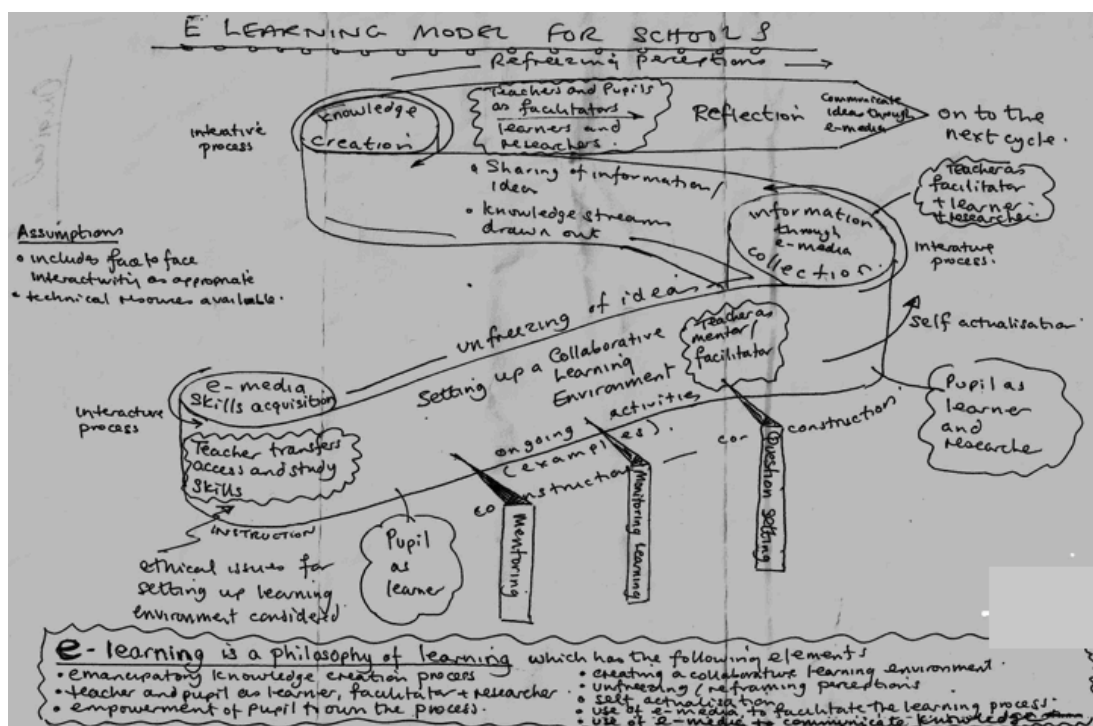 E LEARNING MODEL FOR SCHOOLS
Refreezing perceptions
Knowledge
creation
Interative
process
Teachers and Pupils
as facilitators
learners and
researchers.
Reflection
Communicate
ideas through
e-media
on to the
next cycle.
• Sharing of information/
ideas
• knowledge streams
drawn out
Teacher as
facilitator
+ learner
+ researcher.
information
through
e-media
collection.
Interature
process.
Assumptions
• includes face to face
interactivity as appropriate
• technical resources available.
unfreezing of ideas
Setting up a Collaborative
Learning
Environment
Teacher as
mentor/
facilitator
self actualisation
e-media
skills acquisition
Interacture
process
Teacher transfers
access and study
skills
INSTRUCTION
ongoing activities
(examples).
co instruction
con construction
Pupil as
learner
and
researche
Mentoring
Monitoring Learning
Question Setting
Pupil
as
learner
ethical issues for
setting up learning
environment considered
e-learning is a philosophy of learning which has the following elements
• emancipatory knowledge creation process
• teacher and pupil as learner, facilitator + researcher.
• empowerment of pupil to own the process.
• creating a collaborative learning environment.
• unfreezing/reframing perceptions
• self actualisation
• use of e-media to facilitate the learning process.
• use of e-media to communicate knowledge